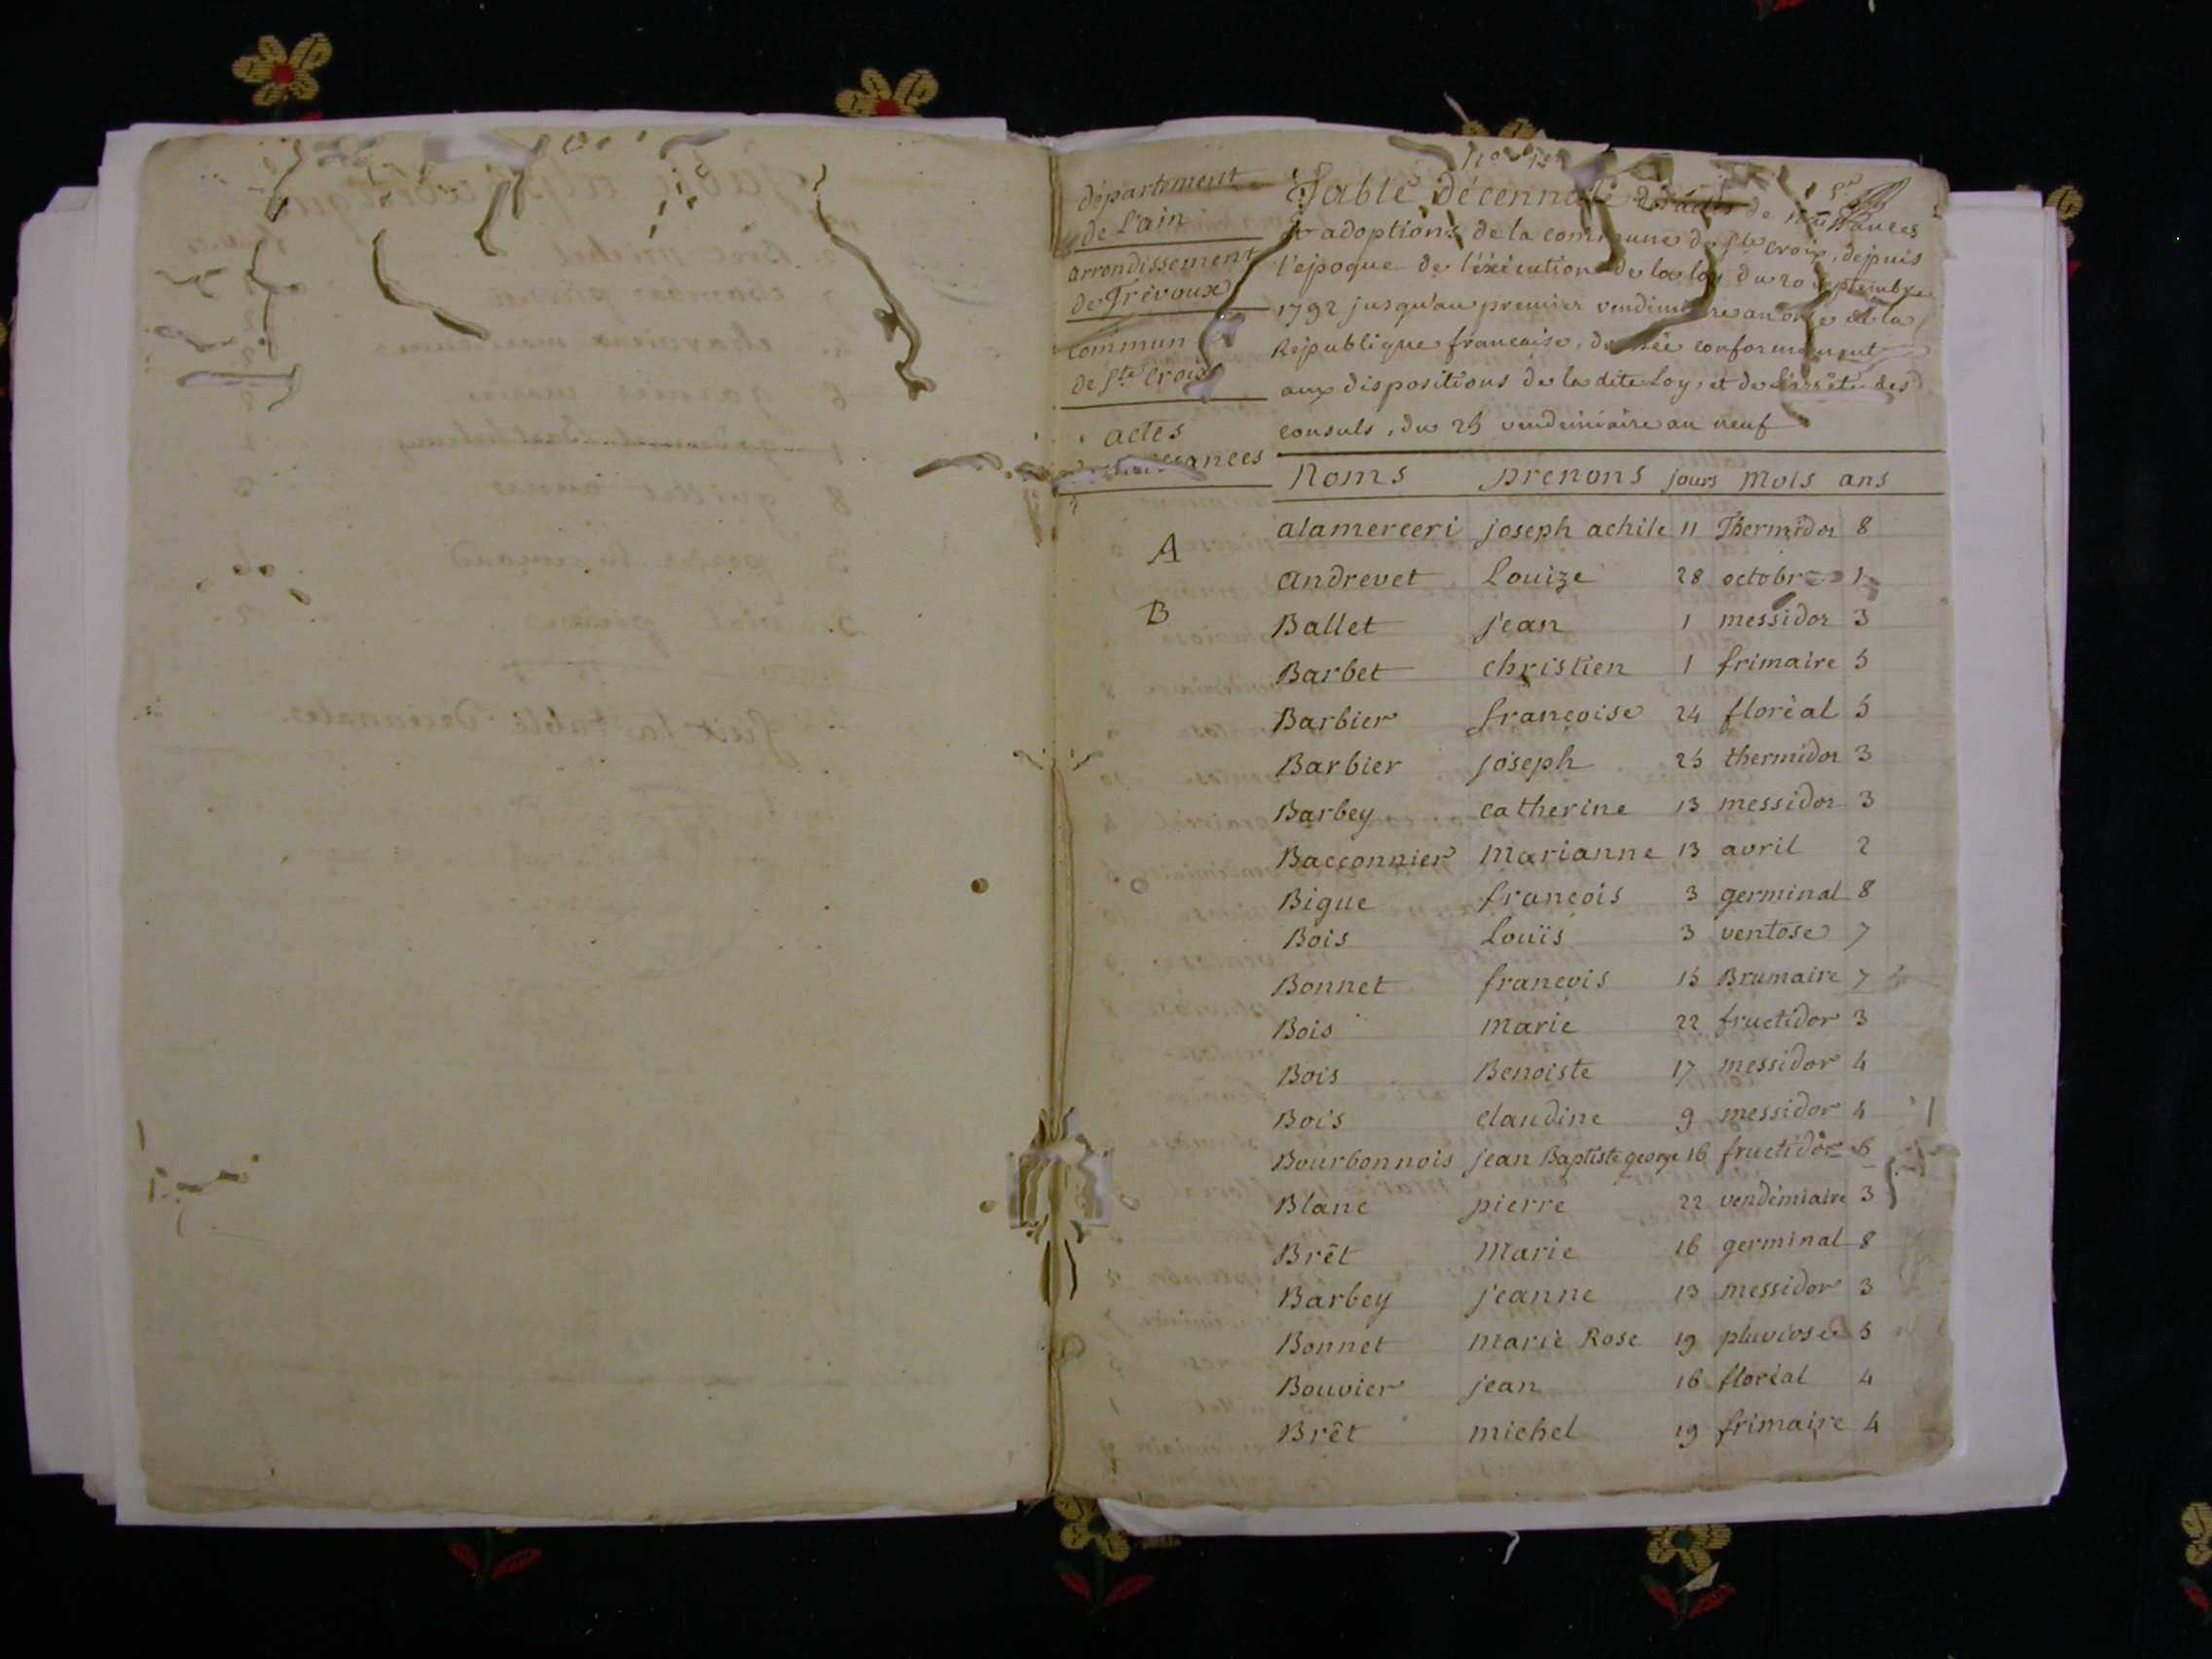 département
de l'ain
arrondissement
de Trévoux
commun
de Ste Croix
actes
naissances
Table décennale des actes de naissances
et adoptions de la commune de Ste Croix, depuis
l'époque de l'éxécution de la loy du 20 septembre
1792 jusqu'au premier vendimiaire an onze de la
République francaise, dressée conformement
aux dispositions de la dite Loy, et de l'arrêté des
consuls, du 25 vendimiaire an neuf
Noms prenons jours Mois ans
A alamerceri joseph achile 11 Thermidor 8
andrevet Louize 28 octobre 1
B Ballet jean 1 messidor 3
Barbet christien 1 frimaire 5
Barbier françoise 24 floréal 5
Barbier joseph 25 thermidor 3
Barbey catherine 13 messidor 3
Bacconnier Marianne 13 avril 2
Bigue francois 3 germinal 8
Bois Louïs 3 ventose 7
Bonnet francois 15 Brumaire 7
Bois Marie 22 fructidor 3
Bois Benoiste 17 messidor 4
Bois claudine 9 messidor 4
Bourbonnois jean Baptiste george 16 fructidor 6
Blanc pierre 22 vendémiaire 3
Brêt Marie 16 germinal 8
Barbey jeanne 13 messidor 3
Bonnet Marie Rose 19 pluviose 5
Bouvier jean 16 floréal 4
Brêt michel 19 frimaire 4